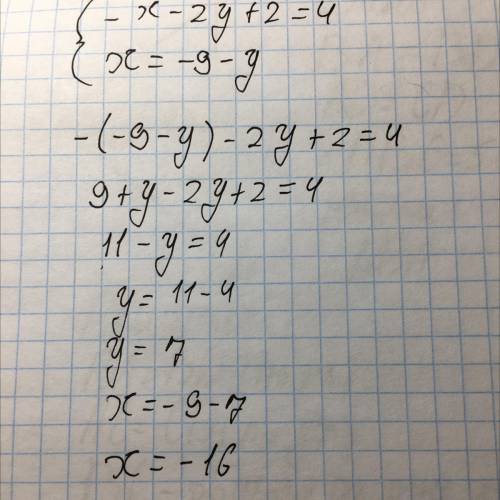 { - x - 2y + 2 = 4
x = -9 - y
-(-9-y) - 2y + 2 = 4
9 + y - 2y + 2 = 4
11 - y = 4
y = 11 - 4
y = 7
x = -9 - 7
x = -16